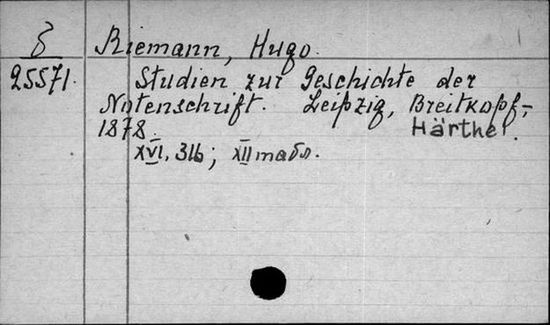 δ Riemann, Hugo.
25571. Studien zur Geschichte der
Notenschrift. Leipzig, Breitkopf,-
1878. Härthel.
XVI, 316; XII табл.